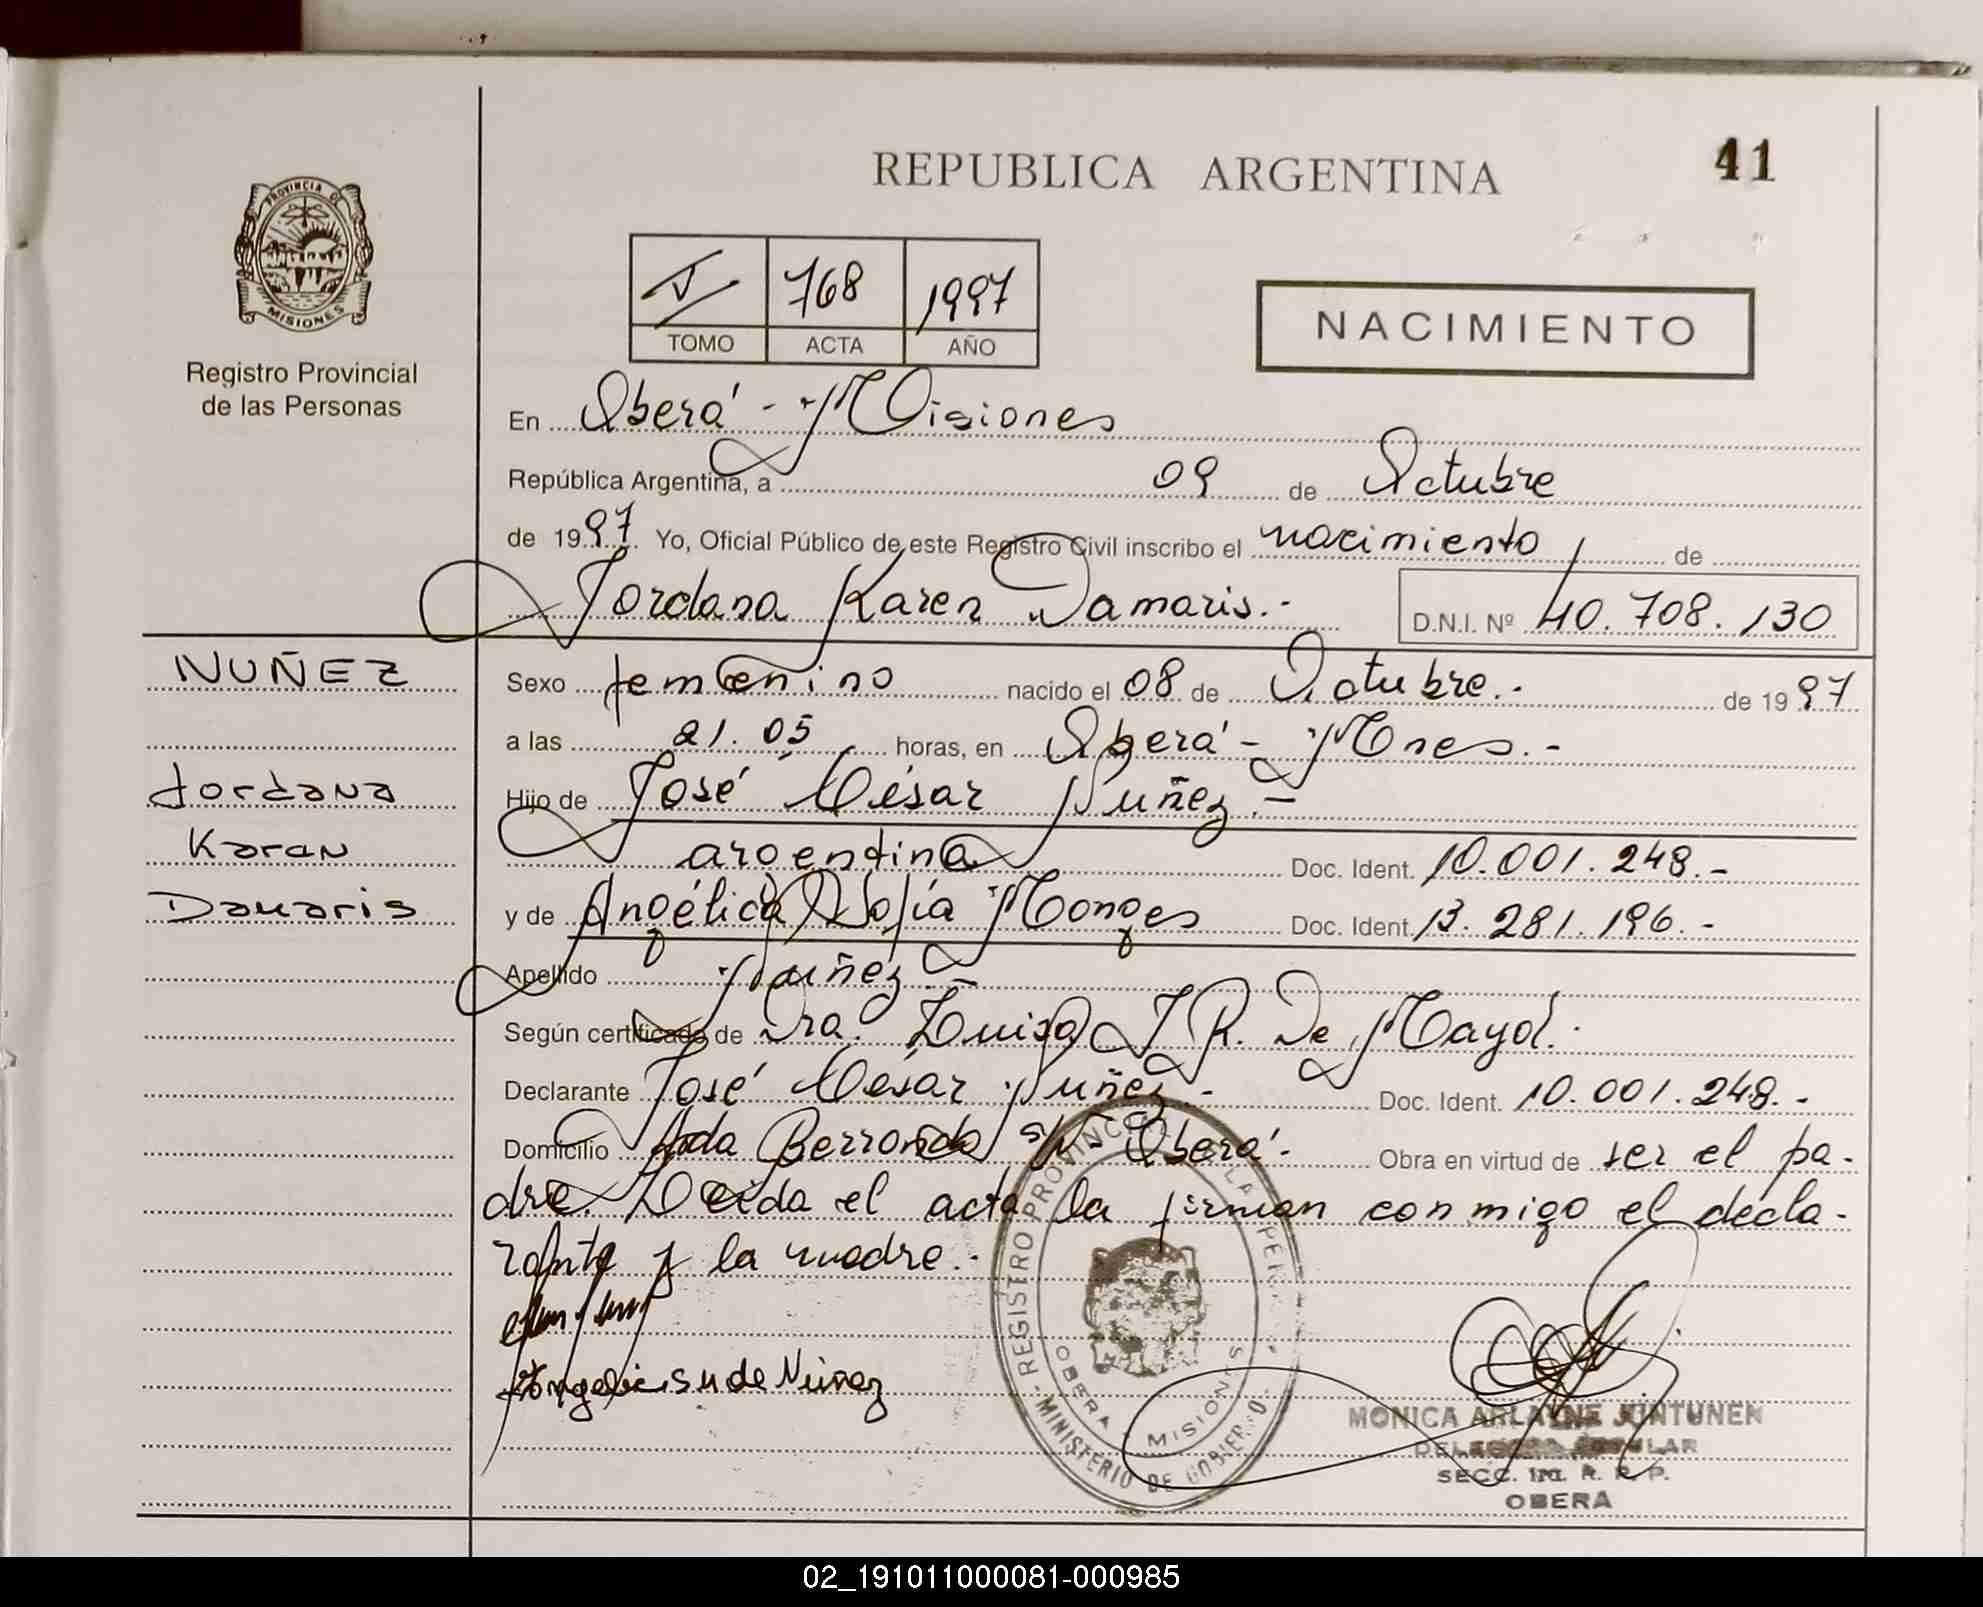 41
REPUBLICA ARGENTINA
PROVINCIA DE
MISIONES
Registro Provincial
de las Personas
I 768 1997
TOMO ACTA AÑO
NACIMIENTO
En Oberá - Misiones
República Argentina, a 09 de Octubre
de 1997 Yo, Oficial Público de este Registro Civil inscribo el nacimiento de
Jordana Karen Damaris.- D.N.I. Nº 40.708.130
NUÑEZ
Jordana
Karen
Damaris
Sexo femenino nacido el 08 de Octubre.- de 1997
a las 21.05 horas, en Oberá - Mnes.-
Hijo de José César Nuñez.-
argentina Doc. Ident. 10.001.248.-
y de Angélica Sofía Monges Doc. Ident. 13.281.196.-
Apellido Nuñez.-
Según certificado de Dra. Luisa J R. De Mayol.
Declarante José César Nuñez.- Doc. Ident. 10.001.248.-
Domicilio Avda Berrondo s/Nº Oberá.- Obra en virtud de ser el pa-
dre. Leida el acta la firman conmigo el decla-
rante y la madre.-
de Nuñez
REGISTRO PROVINCIAL DE LAS PER
OBERA MISIONES
MINISTERIO DE GOBIERNO
MONICA ARLAYNE JUNTUNEN
DELEGADA TITULAR
SECC. R. P. P.
OBERA
02_191011000081-000985